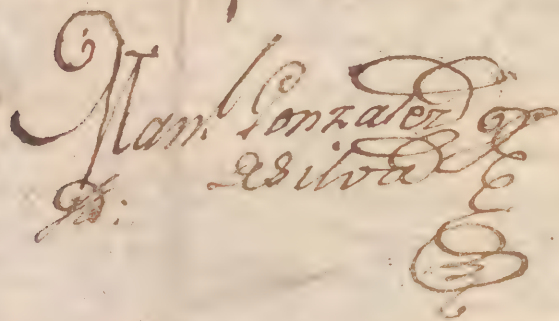 Man.l Gonzalez
deSilva